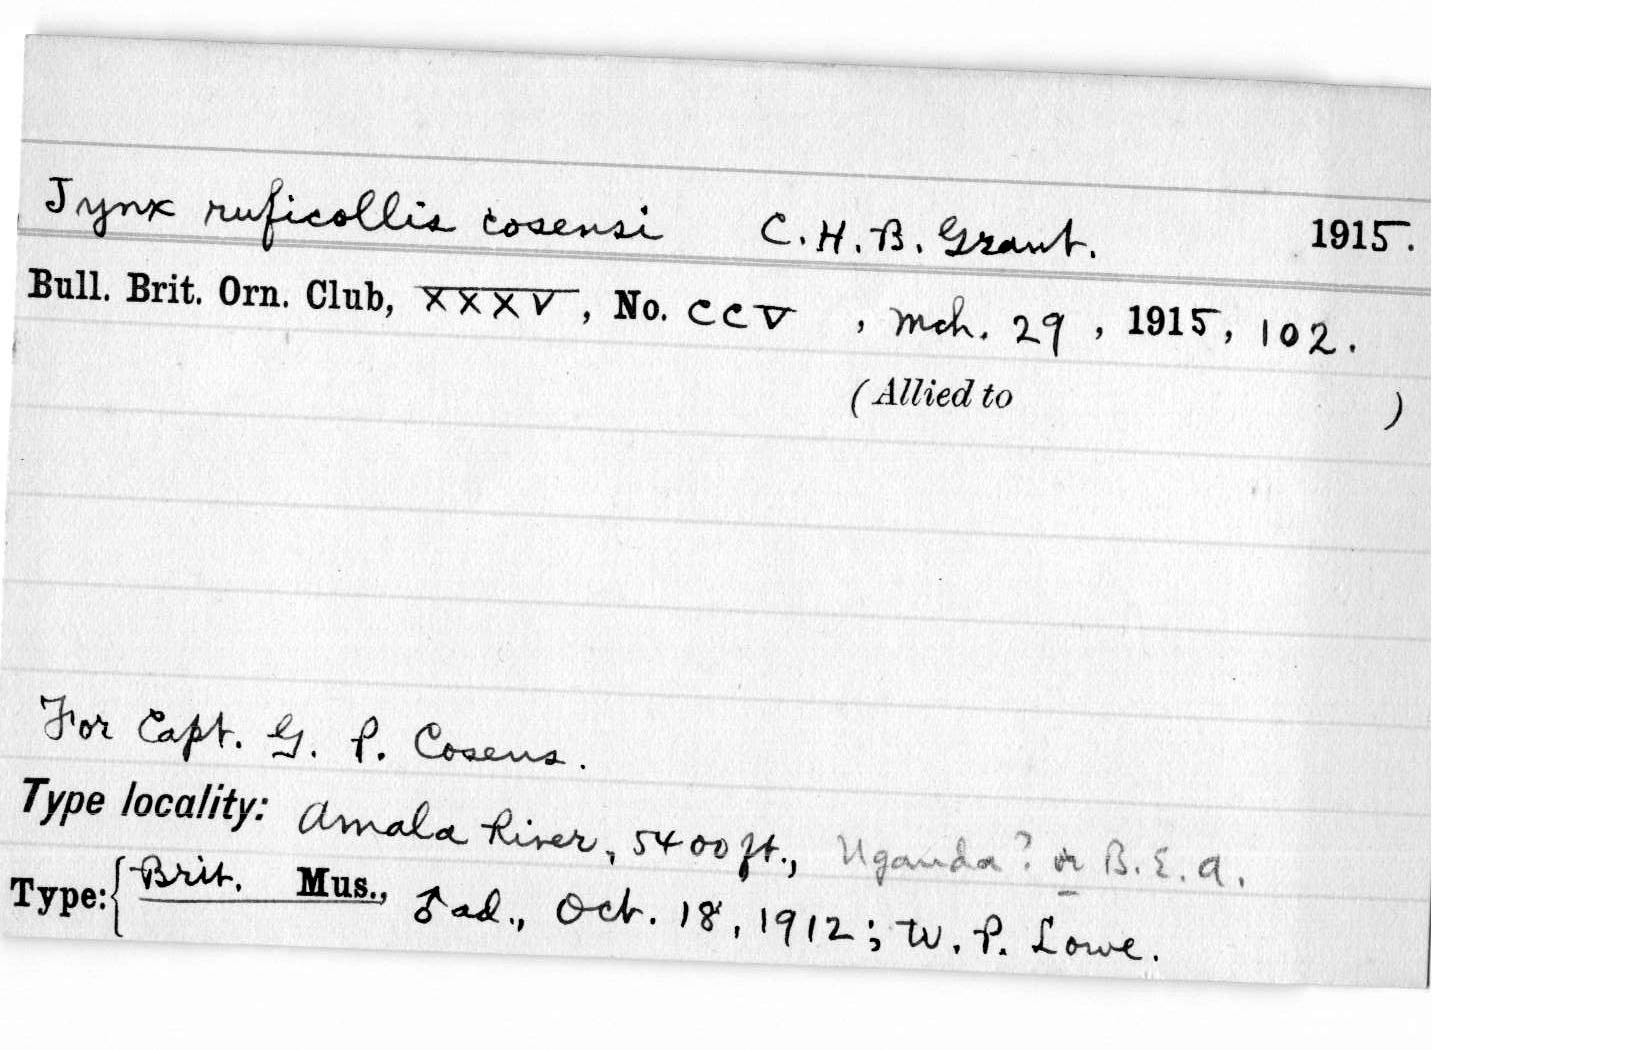 Jynx ruficollis cosensi C.H.B. Grant. 1915.
Bull. Brit. Orn. Club, XXXV, No. CCV, Mch. 29, 1915, 102.
(Allied to )
For Capt. G. P. Cosens.
Type locality: Amala River, 5400 ft., Uganda? or B.E.A.
Type: { Brit. Mus., ♂ ad., Oct. 18, 1912; W. P. Lowe.